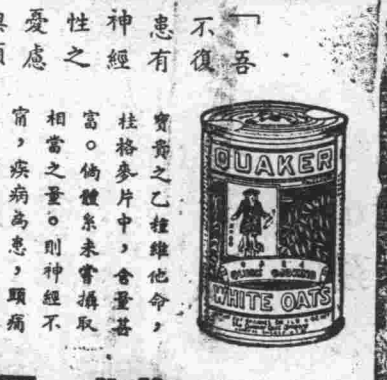 「吾
不復
患有
神經
性之
憂慮
寶貴之乙種維他命,
桂格麥片中,含量甚
富。倘體系未嘗攝取
相當之量。則神經不
甯,疾病為患,頭痛
QUAKER
WHITE OATS